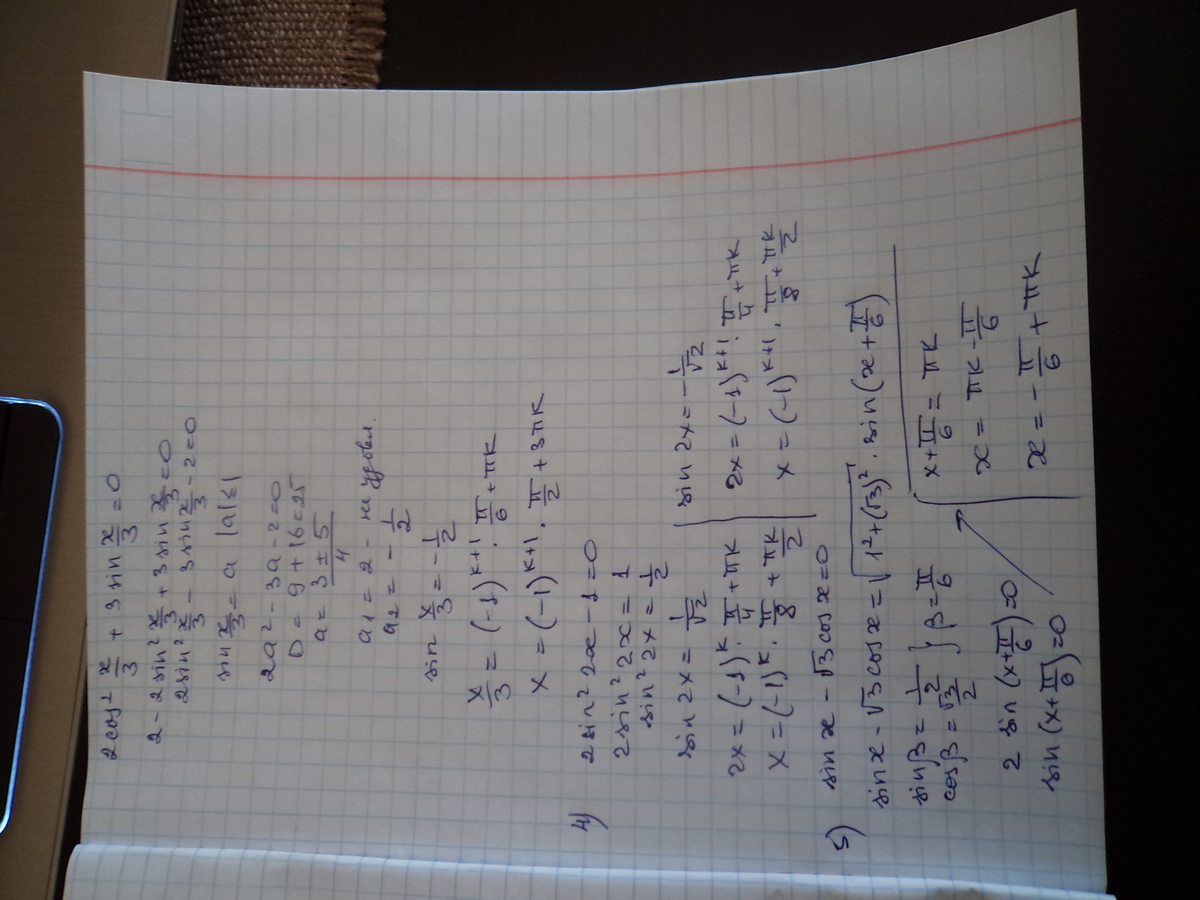 2cos² x/3 + 3 sin x/3 = 0
2 - 2sin² x/3 + 3sin x/3 = 0
2sin² x/3 - 3sin x/3 - 2 = 0
sin x/3 = a |a| ≤ 1
2a² - 3a - 2 = 0
D = 9 + 16 = 25
a = (3 ± 5)/4
a₁ = 2 - не удовл.
a₂ = - 1/2
sin x/3 = - 1/2
x/3 = (-1)ᵏ⁺¹ · π/6 + πк
x = (-1)ᵏ⁺¹ · π/2 + 3πк
4) 2sin² 2x - 1 = 0
2sin² 2x = 1
sin² 2x = 1/2
sin 2x = 1/√2
2x = (-1)ᵏ · π/4 + πк
x = (-1)ᵏ · π/8 + πк/2
sin 2x = - 1/√2
2x = (-1)ᵏ⁺¹ · π/4 + πк
x = (-1)ᵏ⁺¹ · π/8 + πк/2
5) sin x - √3 cos x = 0
sin x - √3 cos x = √(1² + (√3)²) · sin (x + π/6)
sin β = 1/2
cos β = √3/2 } β = π/6
2 sin (x + π/6) = 0
sin (x + π/6) = 0
x + π/6 = πк
x = πк - π/6
x = - π/6 + πк